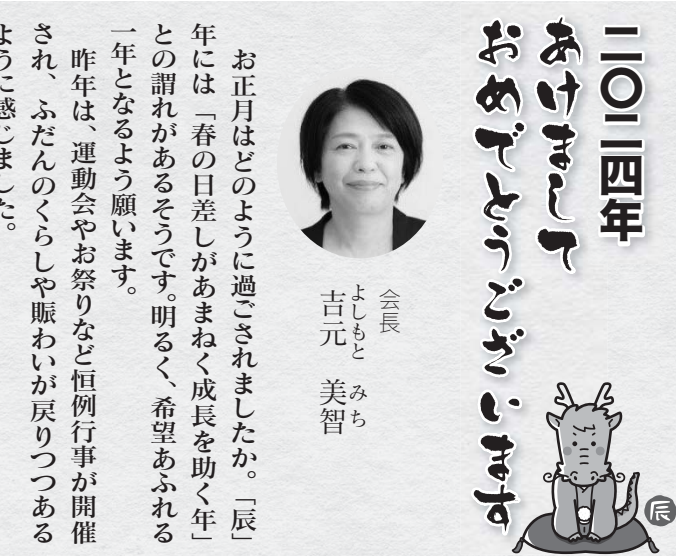 二〇二四年
あけまして
おめでとうございます
辰
会長
よしもと みち
吉元 美智
お正月はどのように過ごされましたか。「辰」
年には「春の日差しがあまねく成長を助く年」
との謂れがあるそうです。明るく、希望あふれる
一年となるよう願います。
昨年は、運動会やお祭りなど恒例行事が開催
され、ふだんのくらしや賑わいが戻りつつある
ように感じました。